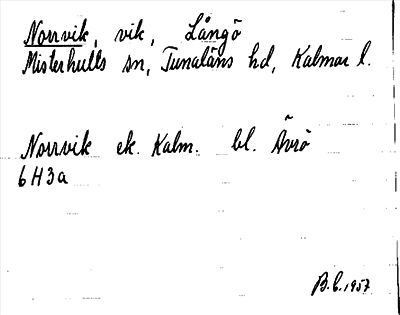 Norrvik, vik, Långö
Misterhults sn, Tunaläns hd, Kalmar l.
Norrvik ek. Kalm. bl. Ävrö
6H3a
B.C. 1957